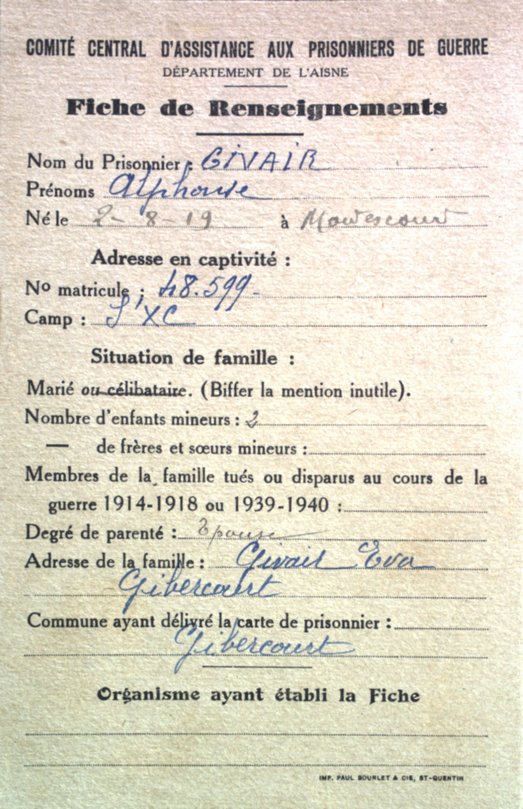 COMITÉ CENTRAL D'ASSISTANCE AUX PRISONNIERS DE GUERRE
DÉPARTEMENT DE L'AISNE
Fiche de Renseignements
Nom du Prisonnier : GIVAIR
Prénoms Alphonse
Né le 2-8-19 à
Adresse en captivité :
No matricule : 48.599-
Camp : XC
Situation de famille :
Marié ou célibataire. (Biffer la mention inutile).
Nombre d'enfants mineurs : 2
— de frères et sœurs mineurs :
Membres de la famille tués ou disparus au cours de la
guerre 1914-1918 ou 1939-1940 :
Degré de parenté : Epouse
Adresse de la famille : Givair Eva
Gibercourt
Commune ayant délivré la carte de prisonnier :
Gibercourt
Organisme ayant établi la Fiche
IMP. PAUL BOURLET & CIE, ST-QUENTIN